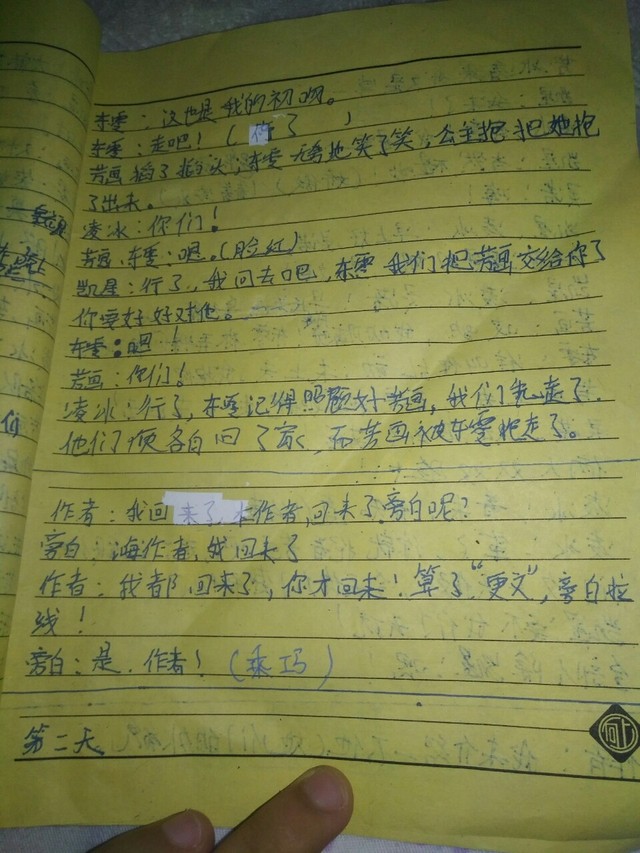 东雯：这也是我的初吻。
东雯：走吧！（ 了 ）
芳画 了 头，东雯无 地笑了笑，公主抱 把她抱
了出去。
凌冰：你们！
芳画、东雯：嗯。（脸红）
凯星：行了，我回去吧，东雯 我们把芳画交给你了
你要好好对他。
东雯：嗯！
芳画：你们！
凌冰：行了，东雯记得照顾好芳画，我们先走了.
他们 各自回了家，而芳画被东雯抱走了。
作者：我回来了，本作者，回来了.旁白呢？
旁白：海作者，我回来了
作者：我都回来了，你才回来！算了“更文”，旁白拉
线！
旁白：是.作者！（乖巧）
第二天.
何上